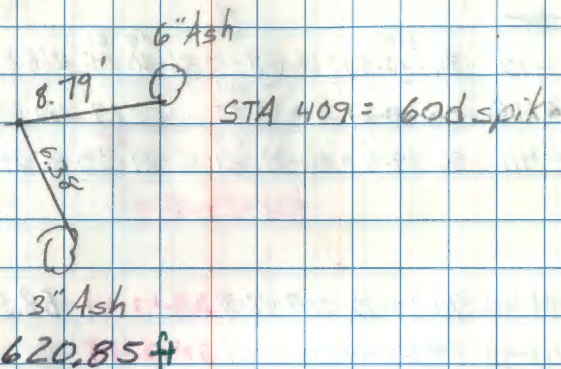 6" Ash
8.79'
STA 409 = 60d spike
3" Ash
620.85 ft